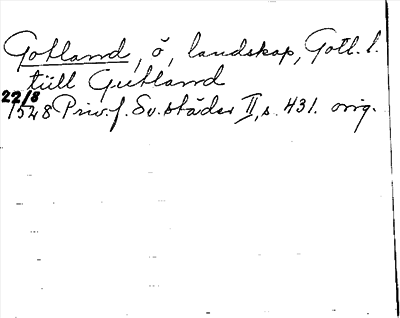 Gotland, ö, landskap, Gotl. l.
tüll Gutland
22/8
1548 Priv. f. Sv. städer II, s. 431. orig.